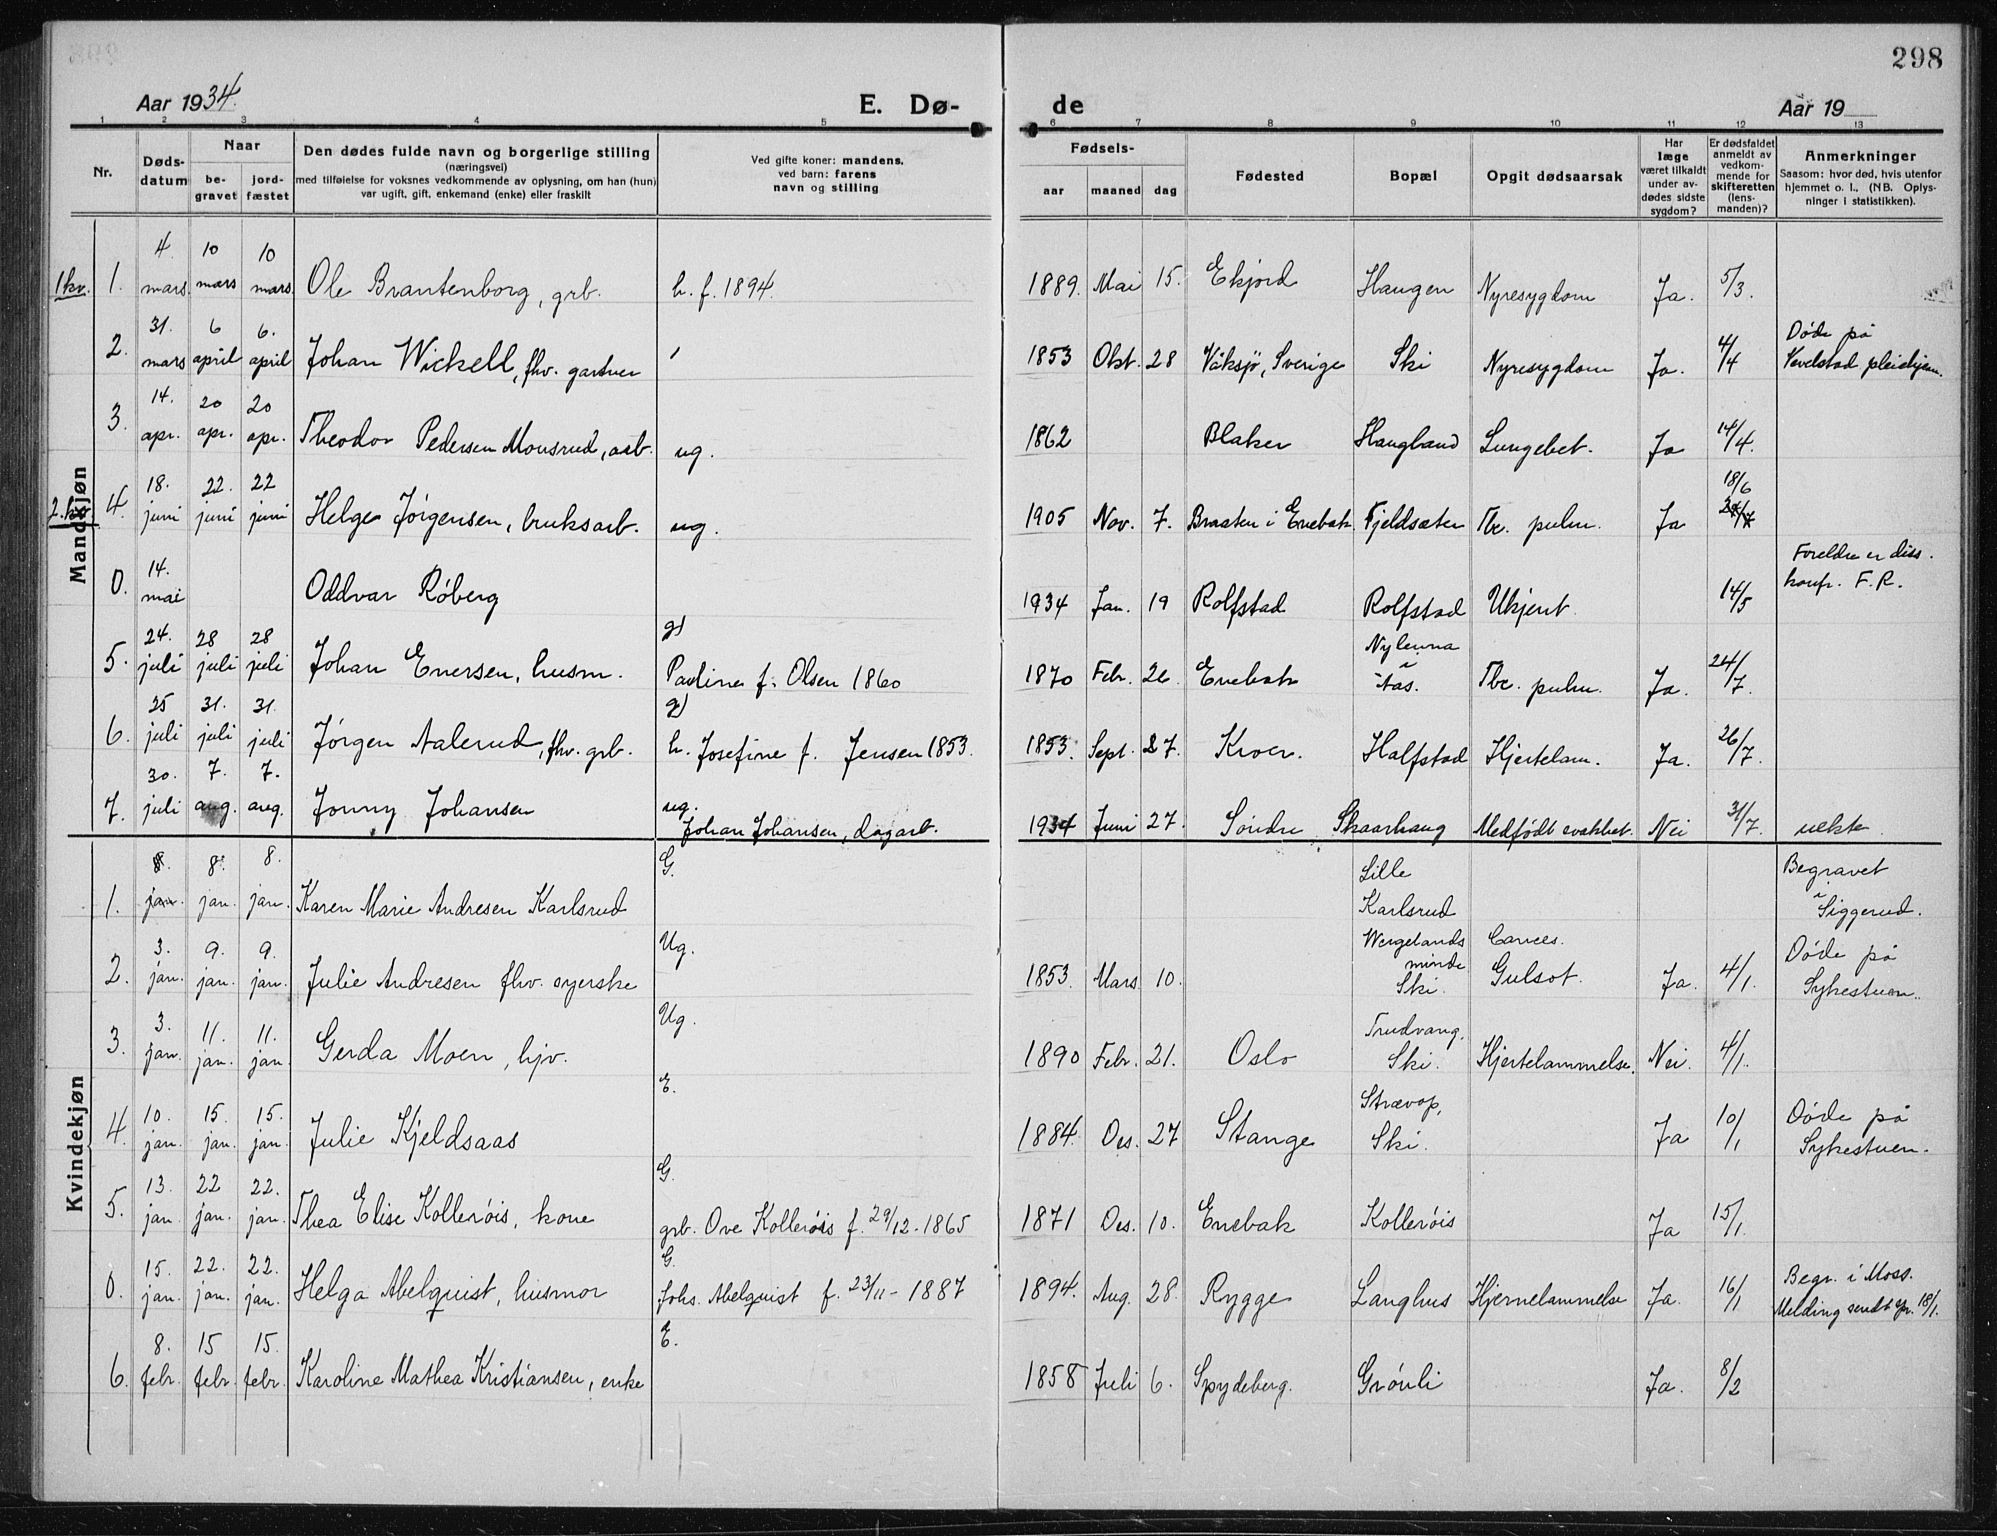 298
Aar 1934.
E. Dø-
de
Aar 19
1 2 3 4 5 6 7 8 9 10 11 12 13
Nr.
Døds-
datum
Naar
be-
gravet
jord-
fæstet
Den dødes fulde navn og borgerlige stilling
(næringsvei)
med tilføielse for voksnes vedkommende av oplysning, om han (hun)
var ugift, gift, enkemand (enke) eller fraskilt
Ved gifte koner: mandens.
ved barn: farens
navn og stilling
Fødsels-
aar maaned dag
Fødested
Bopæl
Opgit dødsaarsak
Har
læge
været tilkaldt
under av-
dødes sidste
sygdom?
Er dødsfaldet
anmeldt av
vedkom-
mende for
skifteretten
(lens-
manden)?
Anmerkninger
Saasom: hvor død, hvis utenfor
hjemmet o. l., (NB. Oplys-
ninger i statistikken).
Mandkjøn
1 kv. 1. 4. mars. 10 mars 10 mars. Ole Brantenborg, grb. h. f. 1894. 1889. Mai 15. Ekjord Haugen Nyresygdom Ja. 5/3.
2. 31. mars 6 april 6. april Johan Wickell, fhv. gartner 1853 Okt. 28 Våksjø, Sverige Ski Nyresygdom Ja. 4/4 Døde på
Vevelstad pleiehjem.
3. 14. apr. 20 apr. 20 apr. Theodor Pedersen Monsrud, arb. ug. 1862 Blaker Haugland Lungebet. Ja 14/4.
2. kv. 4. 18. juni 22. juni 22 juni Helge Jørgensen, bruksarb. ug. 1905 Nov. 7. Braaten i Enebak. Fjeldsæter Tbc. pulm. Ja 18/6
0. 14. mai Oddvar Røberg 1934 Jan. 19 Rolfstad Rolfstad Ukjent. 14/5 Foreldre er diss.
konfr. F. R.
5. 24. juli 28 juli 28 juli Johan Enersen, husm. g)
Pauline f. Olsen 1860 1870 Febr. 26 Enebak Nylenna
i
Aas. Tbc. pulm. Ja. 24/7.
6. 25 juli 31. juli 31. juli Jørgen Aalerud, fhv. grb. g)
h. Josefine f. Jensen 1853. 1853. Sept. 27. Kroer. Halfstad Hjertelam. Ja. 26/7.
7. 30. juli 7. aug. 7. aug. Jonny Johansen ug.
Johan Johansen, dagarb. 1934 Juni 27. Søndre Skaarhaug Medfødt svakhet. Nei 31/7. uekte.
Kvindekjøn
1. 8. jan. 8. jan. 8. jan. Karen Marie Andresen Karlsrud G. Lille
Karlsrud Begravet
i Siggerud.
2. 3. jan. 9. jan. 9. jan. Julie Andresen fhv. syerske Ug. 1853. Mars 10. Wergelands
minde
Ski. Cances.
Gulsot. Ja. 4/1. Døde på
Sykestuen.
3. 3. jan. 11. jan. 11. jan. Gerda Moen, hjv. Ug. 1890 Febr. 21. Oslo Trudvang.
Ski. Hjertelammelse. Nei. 4/1.
4. 10. jan. 15. jan. 15. jan. Julie Kjeldsaas E. 1884. Des. 27 Stange Strævop,
Ski. Ja 10/1 Døde på
Sykestuen.
5. 13. jan. 22 jan. 22. jan. Thea Elise Kollerøis, kone G.
grb. Ove Kollerøis f. 29/12-1865 1871 Des. 10. Enebak Kollerøis Ja 15/1.
0. 15. jan. 22. jan. 22. jan. Helga Abelquist, husmor G.
Johs. Abelquist f. 23/11-1887 1894. Aug. 28. Rygge Langhus Hjernelammelse Ja. 16/1 Begr. i Moss.
Melding sendt spr. 18/1.
6. 8. febr. 15 febr. 15. febr. Karoline Mathea Kristiansen, enke E. 1858 Juli 6. Spydeberg. Grønli Ja. 8/2